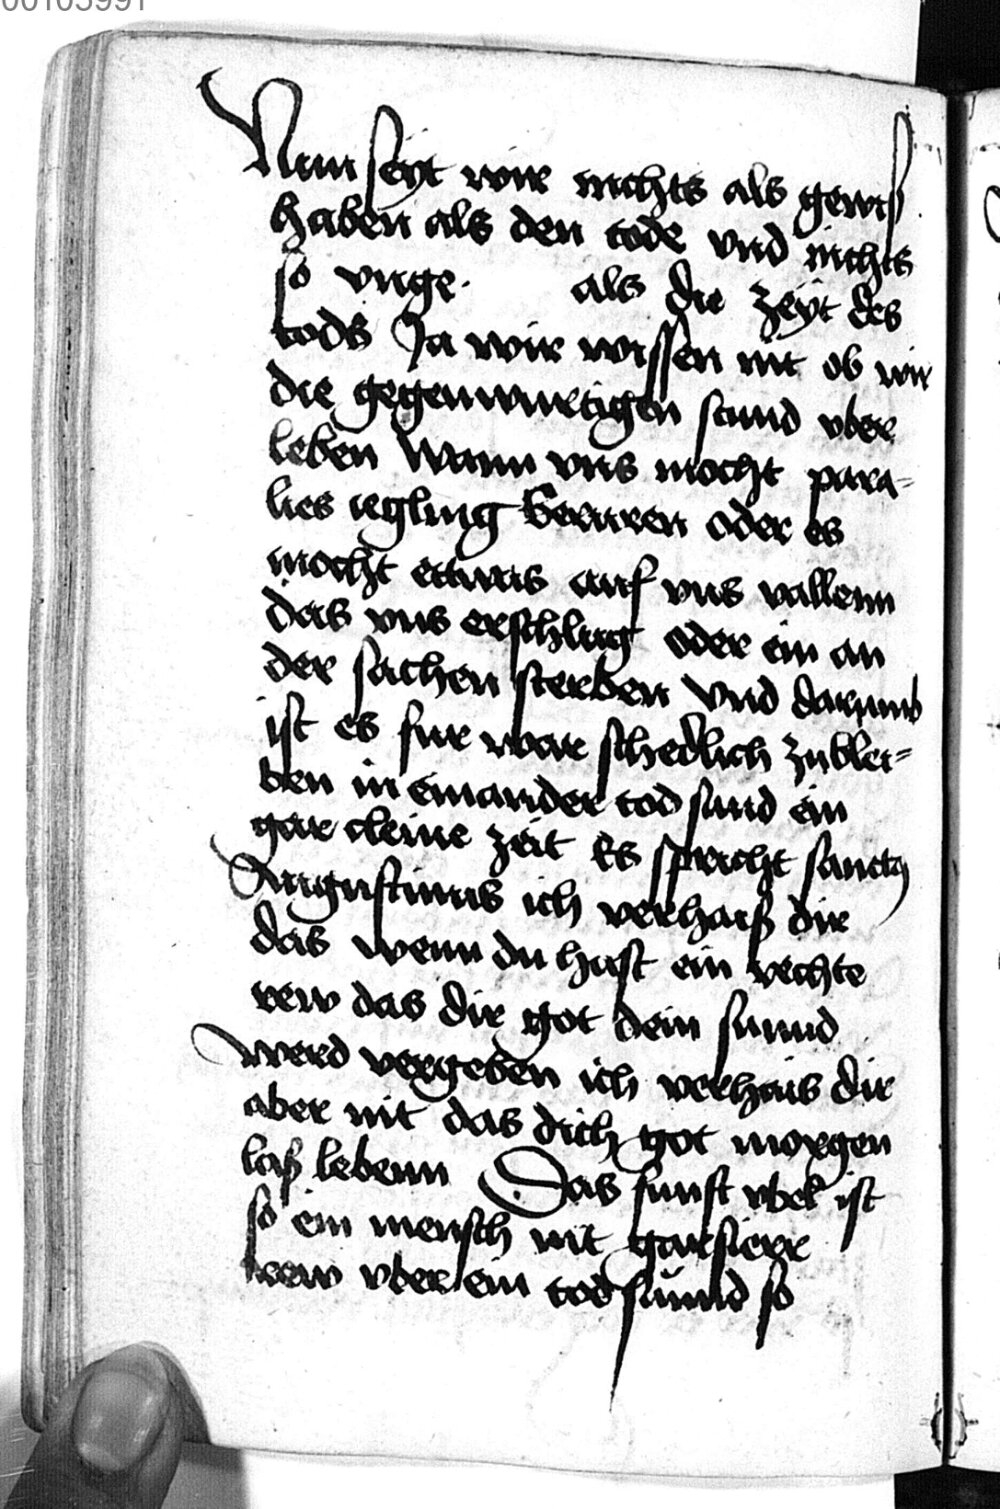 00103991
Nun seyt wir nichts als gewiß
haben als den tode vnd nichts
so vnge. als die zeyt des
tods Ja wir wissen nit ob wir
die gegenwurtigen stund vber
leben Wann vns mocht para-
lies iegling beruren oder es
mocht ettwas auf vns vallenn
das vns erschlug oder ein an
der sachen sterben Vnd darumb
ist es fur war schedlich zu blei-
ben in einander tod sund ein
gar cleine zeit Es spricht sanctus
Augustinus ich verhaiß dir
das wenn du hast ein rechte
rew das dir got dein sunnd
werd vergeben ich verhais dir
aber nit das dich got morgen
laß lebenn Das funft vbel ist
so ein mensch nit
rew vber ein tod sunnd so